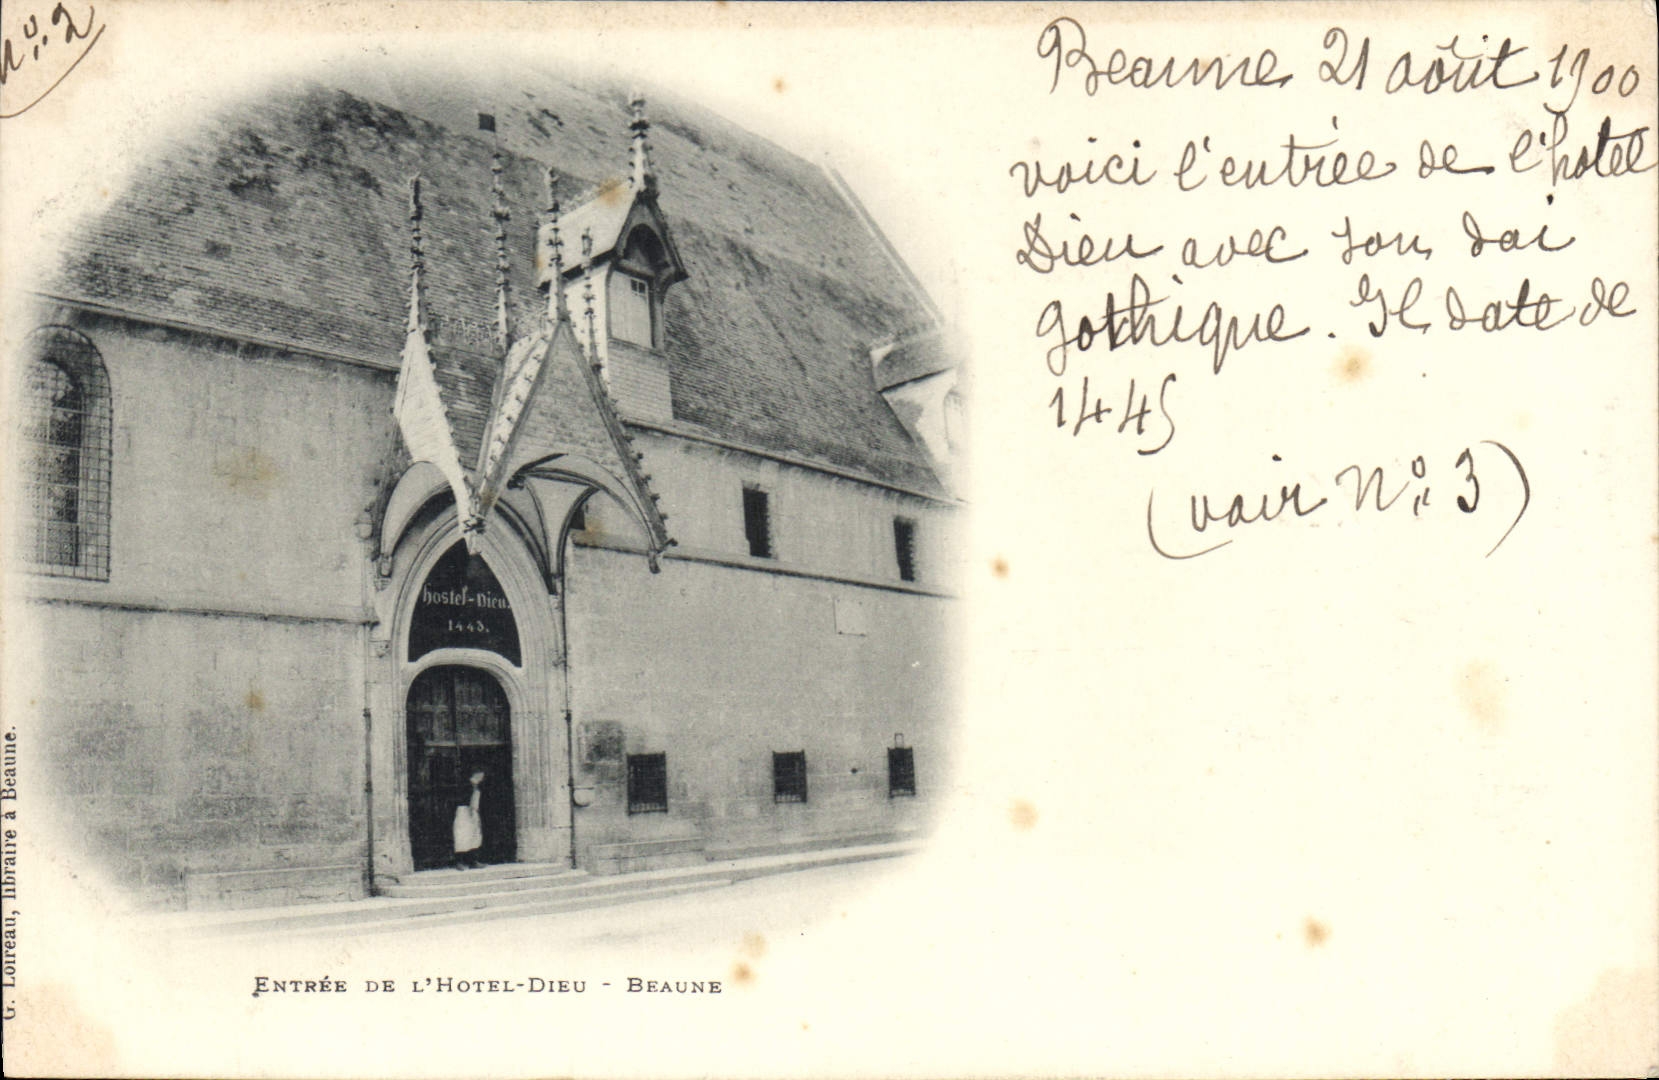 No: 2
Beaune 21 août 1900
voici l'entrée de l'hotel
Dieu avec son dai
gothique. Il date de
1445
(voir No: 3)
hostel-Dieu
1443.
G. Loireau, libraire à Beaune.
ENTRÉE DE L'HOTEL-DIEU - BEAUNE